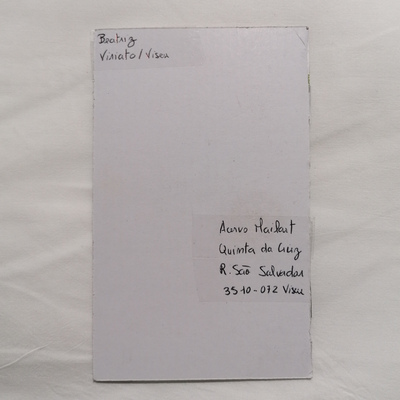 Beatriz
Viriato/Viseu
Acervo MailArt
Quinta da Cruz
R. São Salvador
3510-072 Viseu